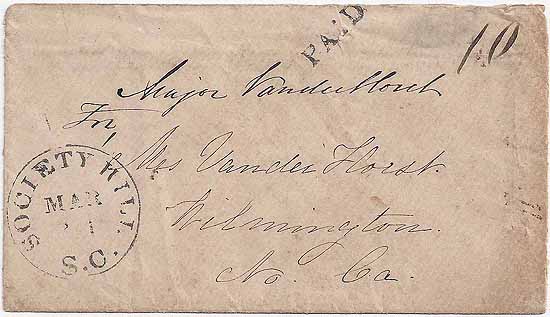 PAID
10
Major VanderHorst
For,
Mrs Vander Horst.
Wilmington.
No. Ca.
SOCIETY HILL
MAR
S.C.